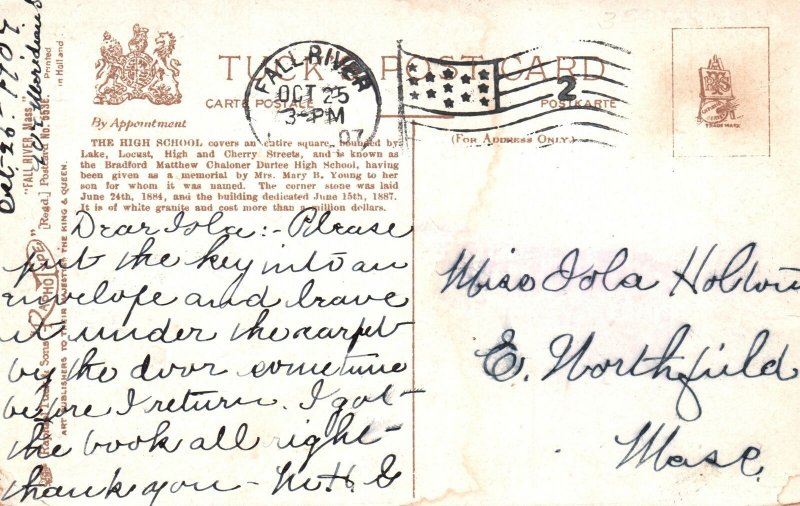 TUCK POST CARD
CARTE POSTALE
POSTKARTE
By Appointment
(For Address Only.)
FALL RIVER
OCT 25
3-PM
07
2
TRADE MARK
THE HIGH SCHOOL covers an entire square, bounded by
Lake, Locust, High and Cherry Streets, and is known as
the Bradford Matthew Chaloner Durfee High School, having
been given as a memorial by Mrs. Mary B. Young to her
son for whom it was named. The corner stone was laid
June 24th, 1884, and the building dedicated June 15th, 1887.
It is of white granite and cost more than a million dollars.
Oct-25-1907.
"FALL RIVER, Mass."
Printed
in Holland
Raphael Tuck & Sons' "RAPHOTYPE" [Regd.] Postcard No. 5536.
ART PUBLISHERS TO THEIR MAJESTIES THE KING & QUEEN.
Dear Iola:- Please
put the key into an
envelope and leave
it under the carpet
by the door sometime
before I return. I got
the book all right-
thank you - M.H.G
Miss Iola Holton
E. Northfield
Mass.